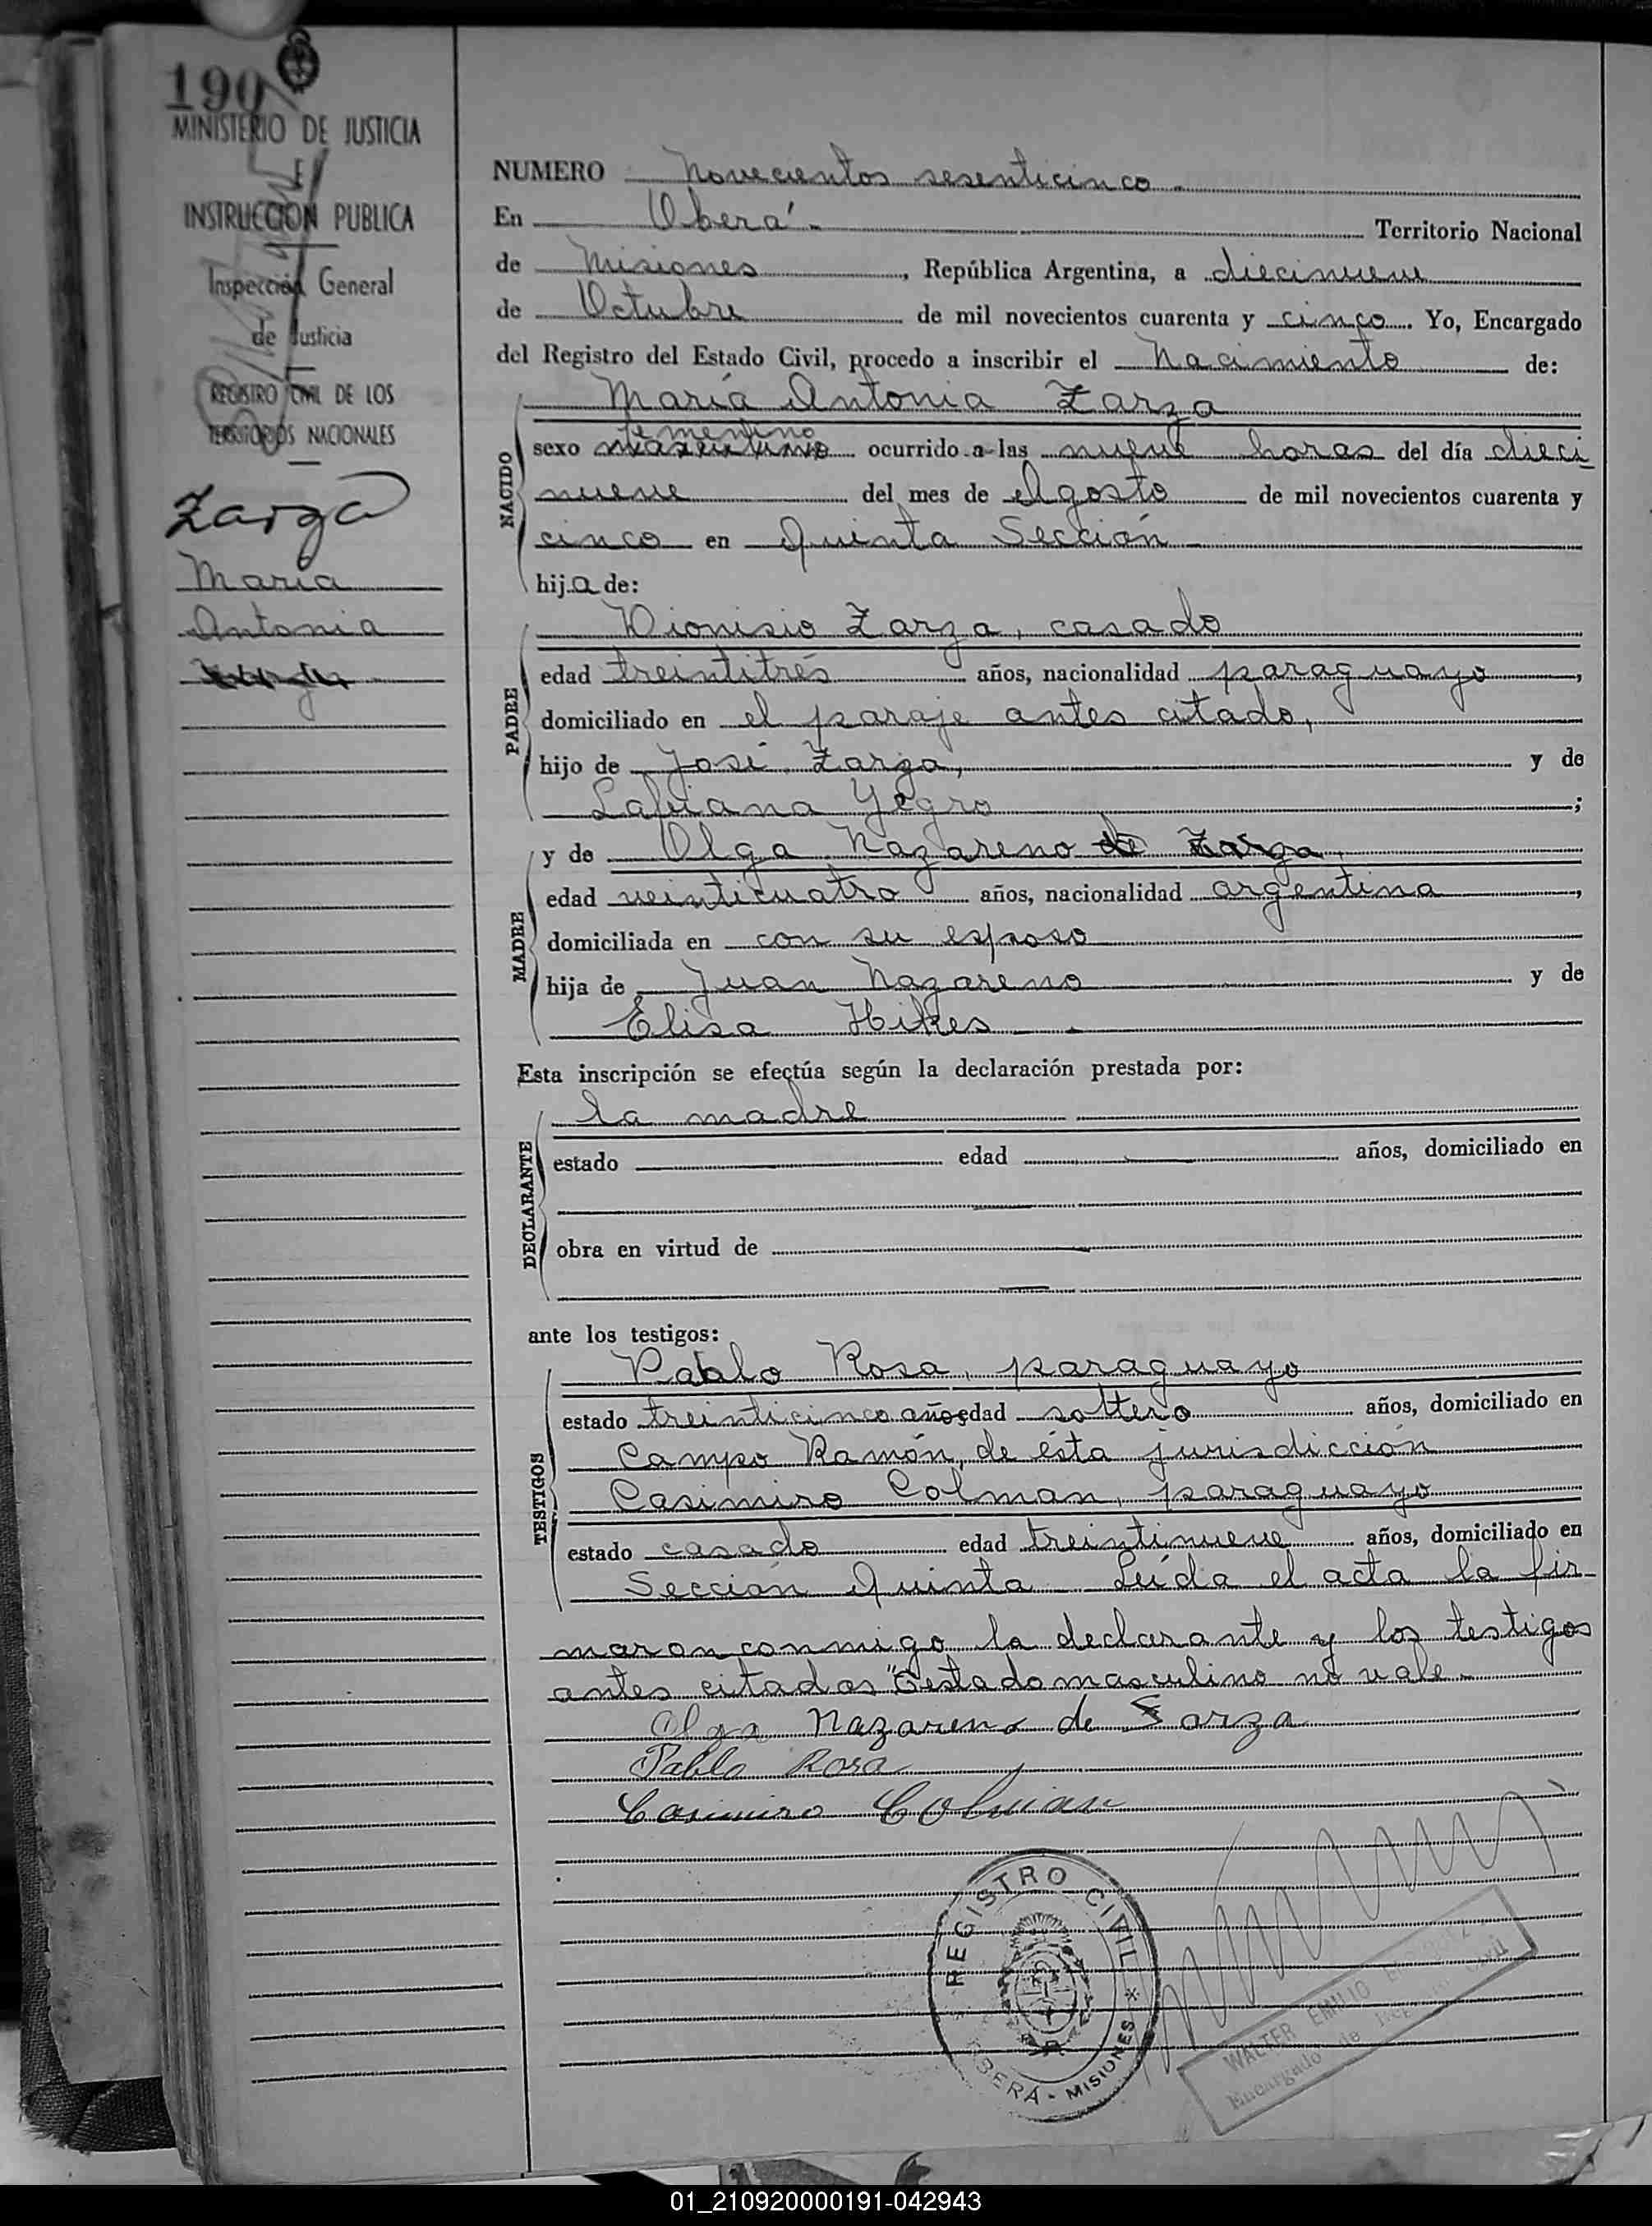 190
MINISTERIO DE JUSTICIA
E
INSTRUCCION PUBLICA
Inspección General
de Justicia
REGISTRO CIVIL DE LOS
TERRITORIOS NACIONALES
Zarza
María
Antonia
NUMERO Novecientos sesenticinco
En Oberá Territorio Nacional
de Misiones, República Argentina, a diecinueve
de Octubre de mil novecientos cuarenta y cinco. Yo, Encargado
del Registro del Estado Civil, procedo a inscribir el Nacimiento de:
María Antonia Zarza
femenino
NACIDO
sexo masculino ocurrido a las nueve horas del día dieci
nueve del mes de Agosto de mil novecientos cuarenta y
cinco en Quinta Sección
hija de:
PADRE
Dionisio Zarza, casado
edad treintitrés años, nacionalidad paraguayo,
domiciliado en el paraje antes citado,
hijo de José Zarza, y de
Yegro;
MADRE
y de Olga Nazareno de Zarza
edad veinticuatro años, nacionalidad argentina,
domiciliada en con su esposo
hija de Juan Nazareno y de
Elisa
Esta inscripción se efectúa según la declaración prestada por:
DECLARANTE
la madre
estado edad años, domiciliado en
obra en virtud de
ante los testigos:
TESTIGOS
Pablo Rosa, paraguayo
estado treinticinco años edad soltero años, domiciliado en
Campo Ramón, de ésta jurisdicción
Casimiro Colman, paraguayo
estado casado edad treintinueve años, domiciliado en
Sección Quinta Leída el acta la fir-
maron conmigo la declarante y los testigos
antes citados masculino no vale
Olga Nazareno de Sarza
Pablo Rosa
Casimiro Colman
REGISTRO CIVIL
OBERÁ - MISIONES
WALTER EMILIO
Encargado de
01_210920000191-042943